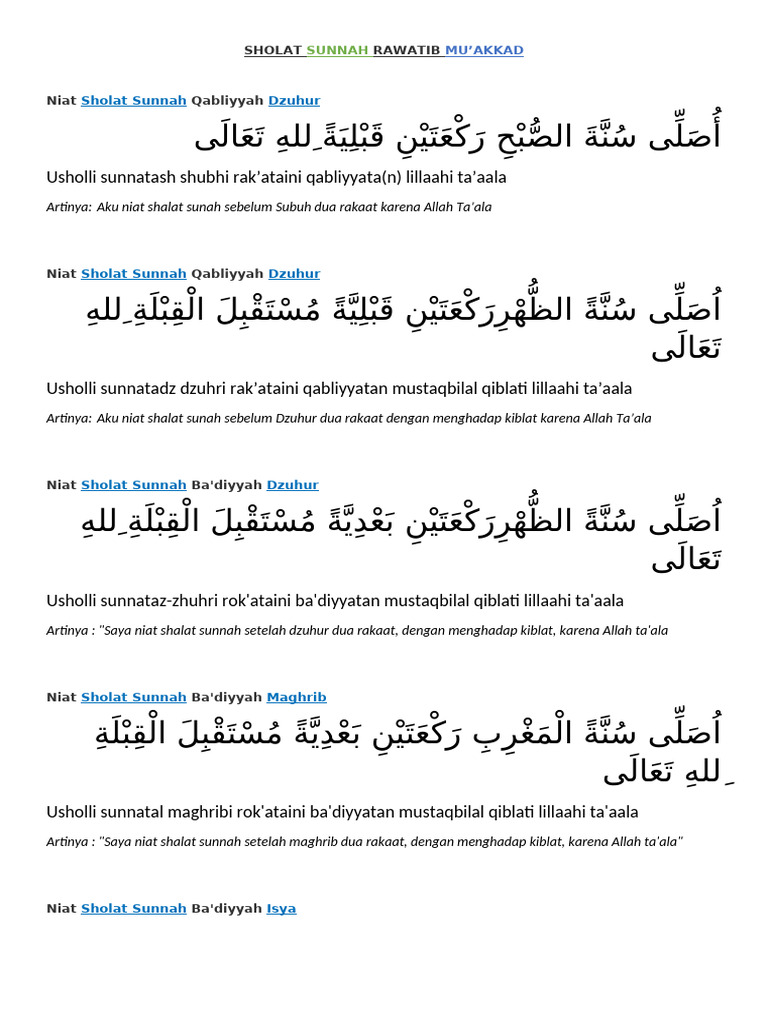 SHOLAT SUNNAH RAWATIB MU’AKKAD
Niat Sholat Sunnah Qabliyyah Dzuhur
أُصَلِّى سُنَّةَ الصُّبْحِ رَكْعَتَيْنِ قَبْلِيَةً ِللهِ تَعَالَى
Usholli sunnatash shubhi rak’ataini qabliyyata(n) lillaahi ta’aala
Artinya: Aku niat shalat sunah sebelum Subuh dua rakaat karena Allah Ta’ala
Niat Sholat Sunnah Qabliyyah Dzuhur
اُصَلِّى سُنَّةً الظُّهْرِرَكْعَتَيْنِ قَبْلِيَّةً مُسْتَقْبِلَ الْقِبْلَةِ ِللهِ
تَعَالَى
Usholli sunnatadz dzuhri rak’ataini qabliyyatan mustaqbilal qiblati lillaahi ta’aala
Artinya: Aku niat shalat sunah sebelum Dzuhur dua rakaat dengan menghadap kiblat karena Allah Ta’ala
Niat Sholat Sunnah Ba'diyyah Dzuhur
اُصَلِّى سُنَّةً الظُّهْرِرَكْعَتَيْنِ بَعْدِيَّةً مُسْتَقْبِلَ الْقِبْلَةِ ِللهِ
تَعَالَى
Usholli sunnataz-zhuhri rok'ataini ba'diyyatan mustaqbilal qiblati lillaahi ta'aala
Artinya : "Saya niat shalat sunnah setelah dzuhur dua rakaat, dengan menghadap kiblat, karena Allah ta'ala
Niat Sholat Sunnah Ba'diyyah Maghrib
اُصَلِّى سُنَّةً الْمَغْرِبِ رَكْعَتَيْنِ بَعْدِيَّةً مُسْتَقْبِلَ الْقِبْلَةِ
ِللهِ تَعَالَى
Usholli sunnatal maghribi rok'ataini ba'diyyatan mustaqbilal qiblati lillaahi ta'aala
Artinya : "Saya niat shalat sunnah setelah maghrib dua rakaat, dengan menghadap kiblat, karena Allah ta'ala"
Niat Sholat Sunnah Ba'diyyah Isya